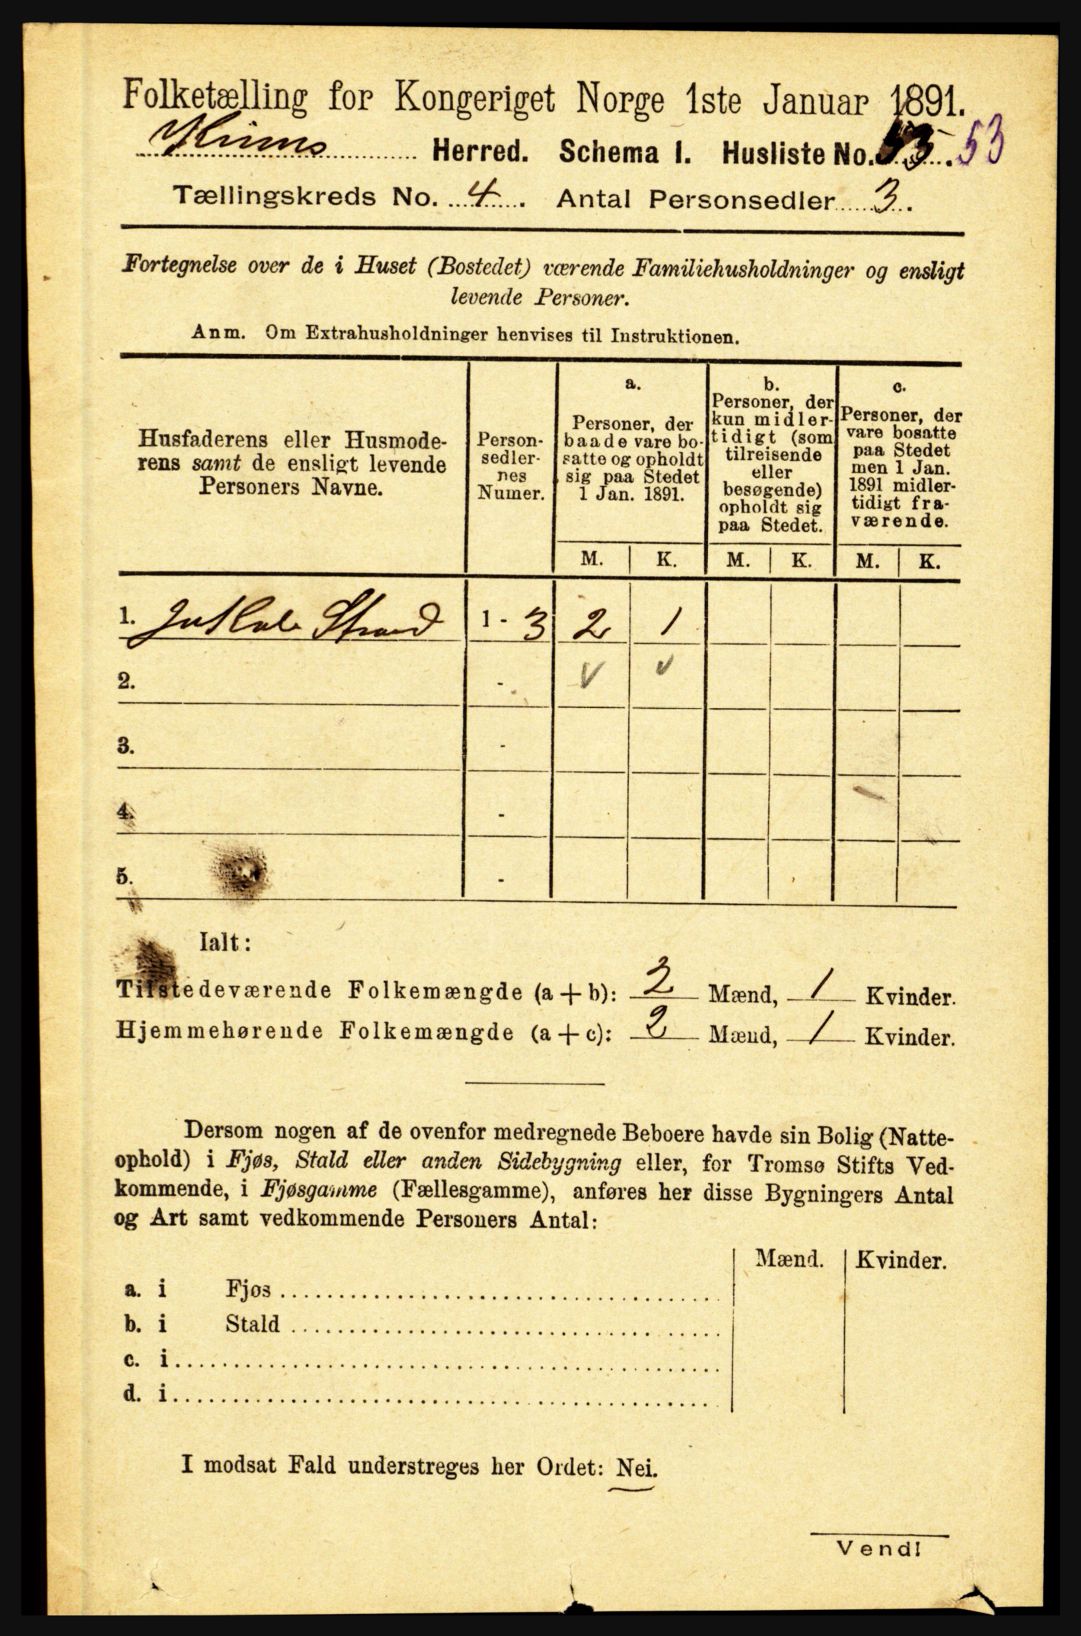 Folketælling for Kongeriget Norge 1ste Januar 1891.
Kinns Herred. Schema I. Husliste No. 53. 53
Tællingskreds No. 4. Antal Personsedler 3.
Fortegnelse over de i Huset (Bostedet) værende Familiehusholdninger og ensligt
levende Personer.
Anm. Om Extrahusholdninger henvises til Instruktionen.
Husfaderens eller Husmode-
rens samt de ensligt levende
Personers Navne.
Person-
sedler-
nes
Numer.
a.
Personer, der
baade vare bo-
satte og opholdt
sig paa Stedet
1 Jan. 1891.
b.
Personer, der
kun midler-
tidigt (som
tilreisende
eller
besøgende)
opholdt sig
paa Stedet.
c.
Personer, der
vare bosatte
paa Stedet
men 1 Jan.
1891 midler-
tidigt fra-
værende.
M. K. M. K. M. K.
1. Strand 1 - 3 2 1
2. - v v
3. -
4. -
5. -
Ialt:
Tilstedeværende Folkemængde (a + b): 2 Mænd, 1 Kvinder.
Hjemmehørende Folkemængde (a + c): 2 Mænd, 1 Kvinder.
Dersom nogen af de ovenfor medregnede Beboere havde sin Bolig (Natte-
ophold) i Fjøs, Stald eller anden Sidebygning eller, for Tromsø Stifts Ved-
kommende, i Fjøsgamme (Fællesgamme), anføres her disse Bygningers Antal
og Art samt vedkommende Personers Antal:
Mænd. Kvinder.
a. i Fjøs
b. i Stald
c. i
d. i
I modsat Fald understreges her Ordet: Nei.
Vend!